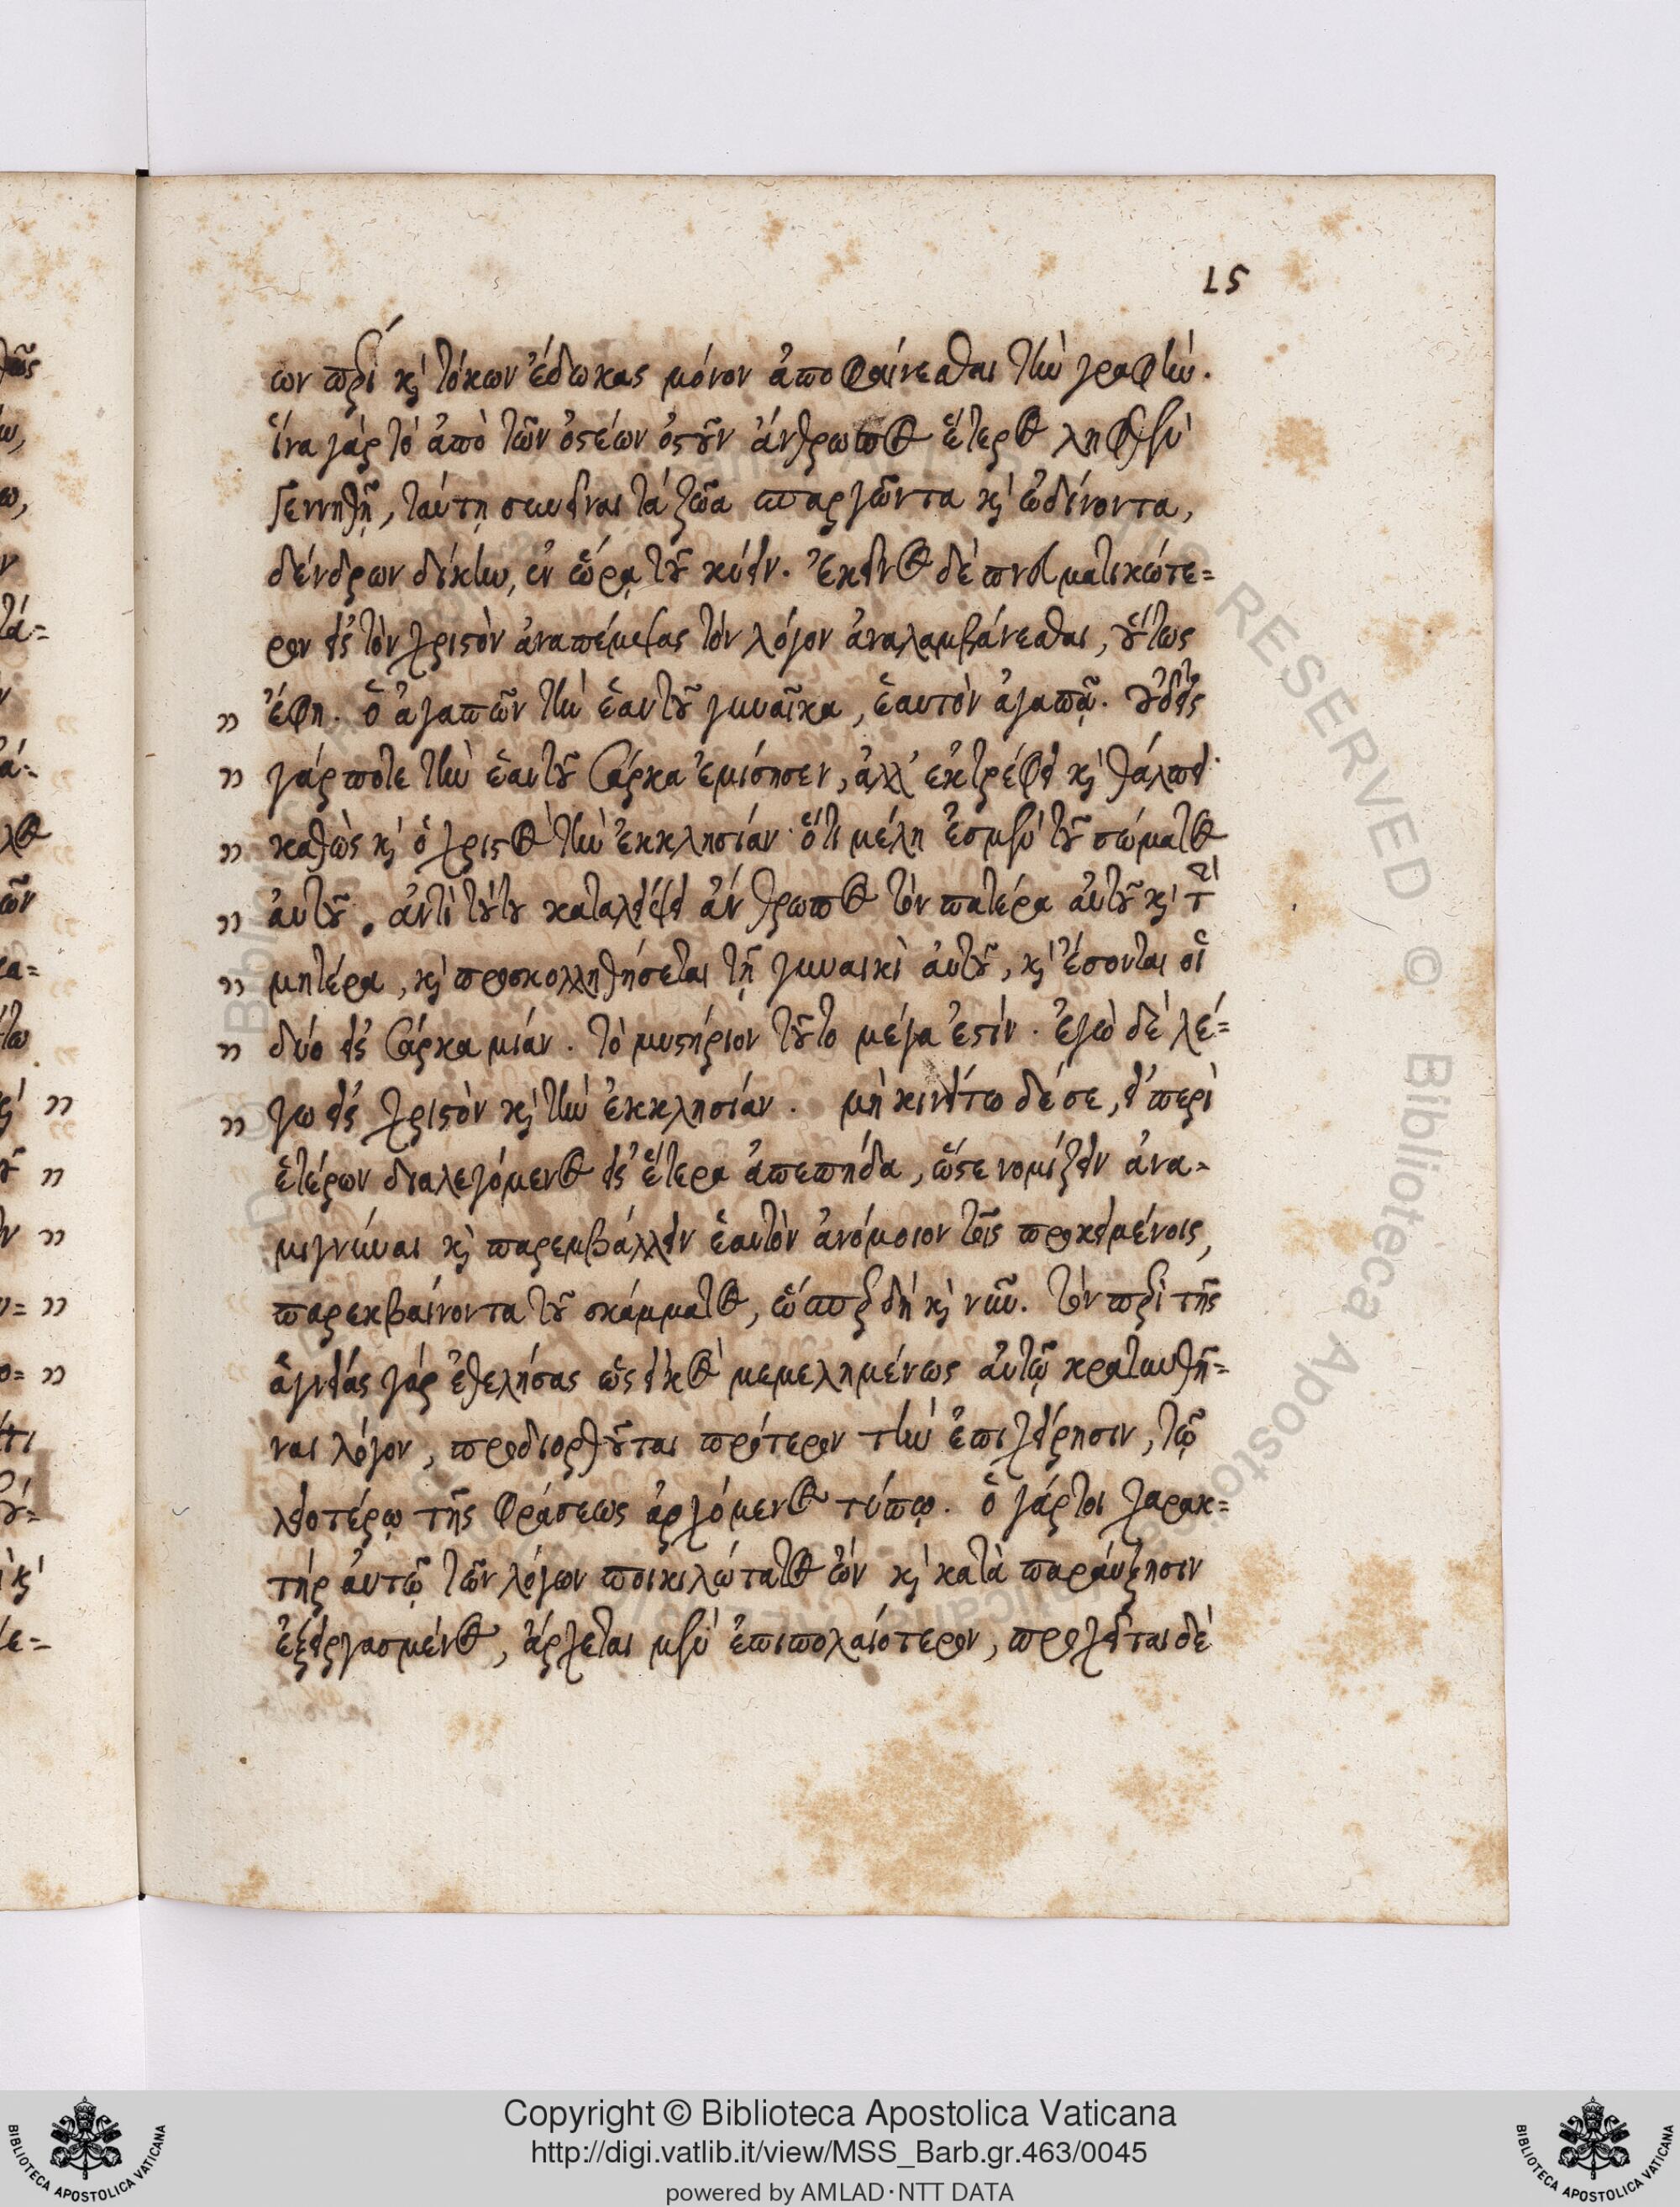 15
ων περὶ καὶ τόκων ἔδωκας μόνον ἀποφαίνεσθαι τὴν γραφήν.
ἵνα γὰρ τὸ ἀπὸ τῶν ὀστέων ὀστοῦν ἄνθρωπος ἕτερος ληφθὲν
γεννηθῇ, ταύτῃ συνεῖναι τὰ ζῶα σπαργῶντα καὶ ὠδίνοντα,
δένδρων δίκην, ἐν ὥρᾳ τοῦ κύειν. Ἐκεῖνος δὲ πνευματικώτε=
ρον εἰς τὸν χριστὸν ἀναπέμψας τὸν λόγον ἀναλαμβάνεσθαι, οὕτως
" ἔφη. ὁ ἀγαπῶν τὴν ἑαυτοῦ γυναῖκα, ἑαυτὸν ἀγαπᾷ. οὐδεὶς
" γάρ ποτε τὴν ἑαυτοῦ σάρκα ἐμίσησεν, ἀλλ' ἐκτρέφει καὶ θάλπει·
" καθὼς καὶ ὁ χριστὸς τὴν ἐκκλησίαν· ὅτι μέλη ἐσμὲν τοῦ σώματος
" αὐτοῦ. ἀντὶ τούτου καταλείψει ἄνθρωπος τὸν πατέρα αὐτοῦ καὶ τὴν
" μητέρα, καὶ προσκολληθήσεται τῇ γυναικὶ αὐτοῦ, καὶ ἔσονται οἱ
" δύο εἰς σάρκα μίαν. τὸ μυστήριον τοῦτο μέγα ἐστίν. ἐγὼ δὲ λέ=
" γω εἰς χριστὸν καὶ τὴν ἐκκλησίαν. μὴ κινείτω δέ σε, εἰ περὶ
ἑτέρων διαλεγόμενος εἰς ἕτερα ἀπεπήδα, ὥστε νομίζειν ἀνα=
μιγνύναι καὶ παρεμβάλλειν ἑαυτὸν ἀνόμοιον τοῖς προκειμένοις,
παρεκβαίνοντα τοῦ σκάμματος, ὥσπερ δὴ καὶ νῦν. τὸν περὶ τῆς
ἁγνείας γὰρ ἐθελήσας ὡς εἰκὸς μεμελημένως αὐτῷ κρατυνθῆ=
ναι λόγον, προδιορθοῦται πρότερον τὴν ἐπιχείρησιν, τῷ
λειοτέρῳ τῆς φράσεως ἀρχόμενος τύπῳ. ὁ γάρ τοι χαρακ=
τὴρ αὐτῷ τῶν λόγων ποικιλώτατος ὢν καὶ κατὰ παραύξησιν
ἐξειργασμένος, ἄρχεται μὲν ἐπιπολαιότερον, προχεῖται δὲ
Copyright © Biblioteca Apostolica Vaticana
http://digi.vatlib.it/view/MSS_Barb.gr.463/0045
powered by AMLAD·NTT DATA